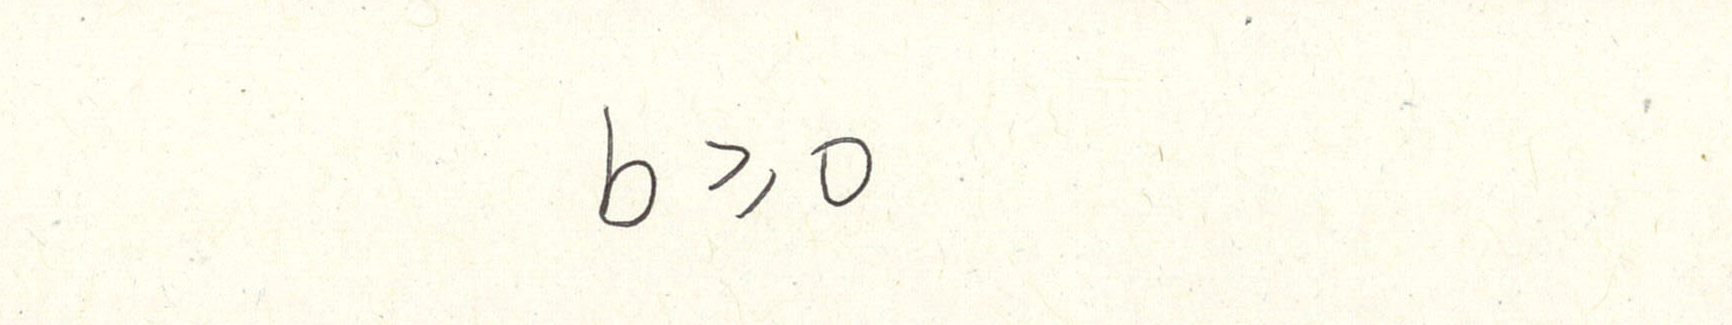 b ⩾ 0